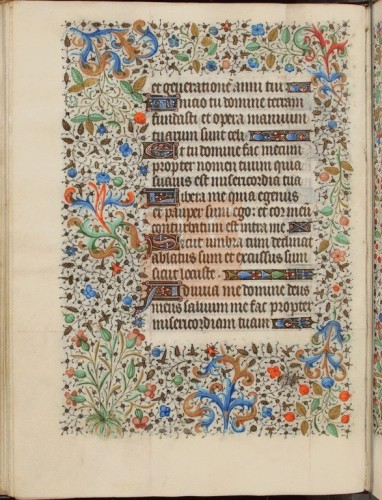 et generatione anni tui
Inicio tu domine terram
fundasti et opera manuum
tuarum sunt celi
Et tu domine fac mecum
propter nomen tuum quia
suavis est misericordia tua
Libera me quia egenus
et pauper sum ego: et cor meu
conturbatum est intra me
Sicut umbra cum declinat
ablatus sum et excussus sum
sicut locuste.
Adiuva me domine deus
meus salvum me fac propter
misericordiam tuam